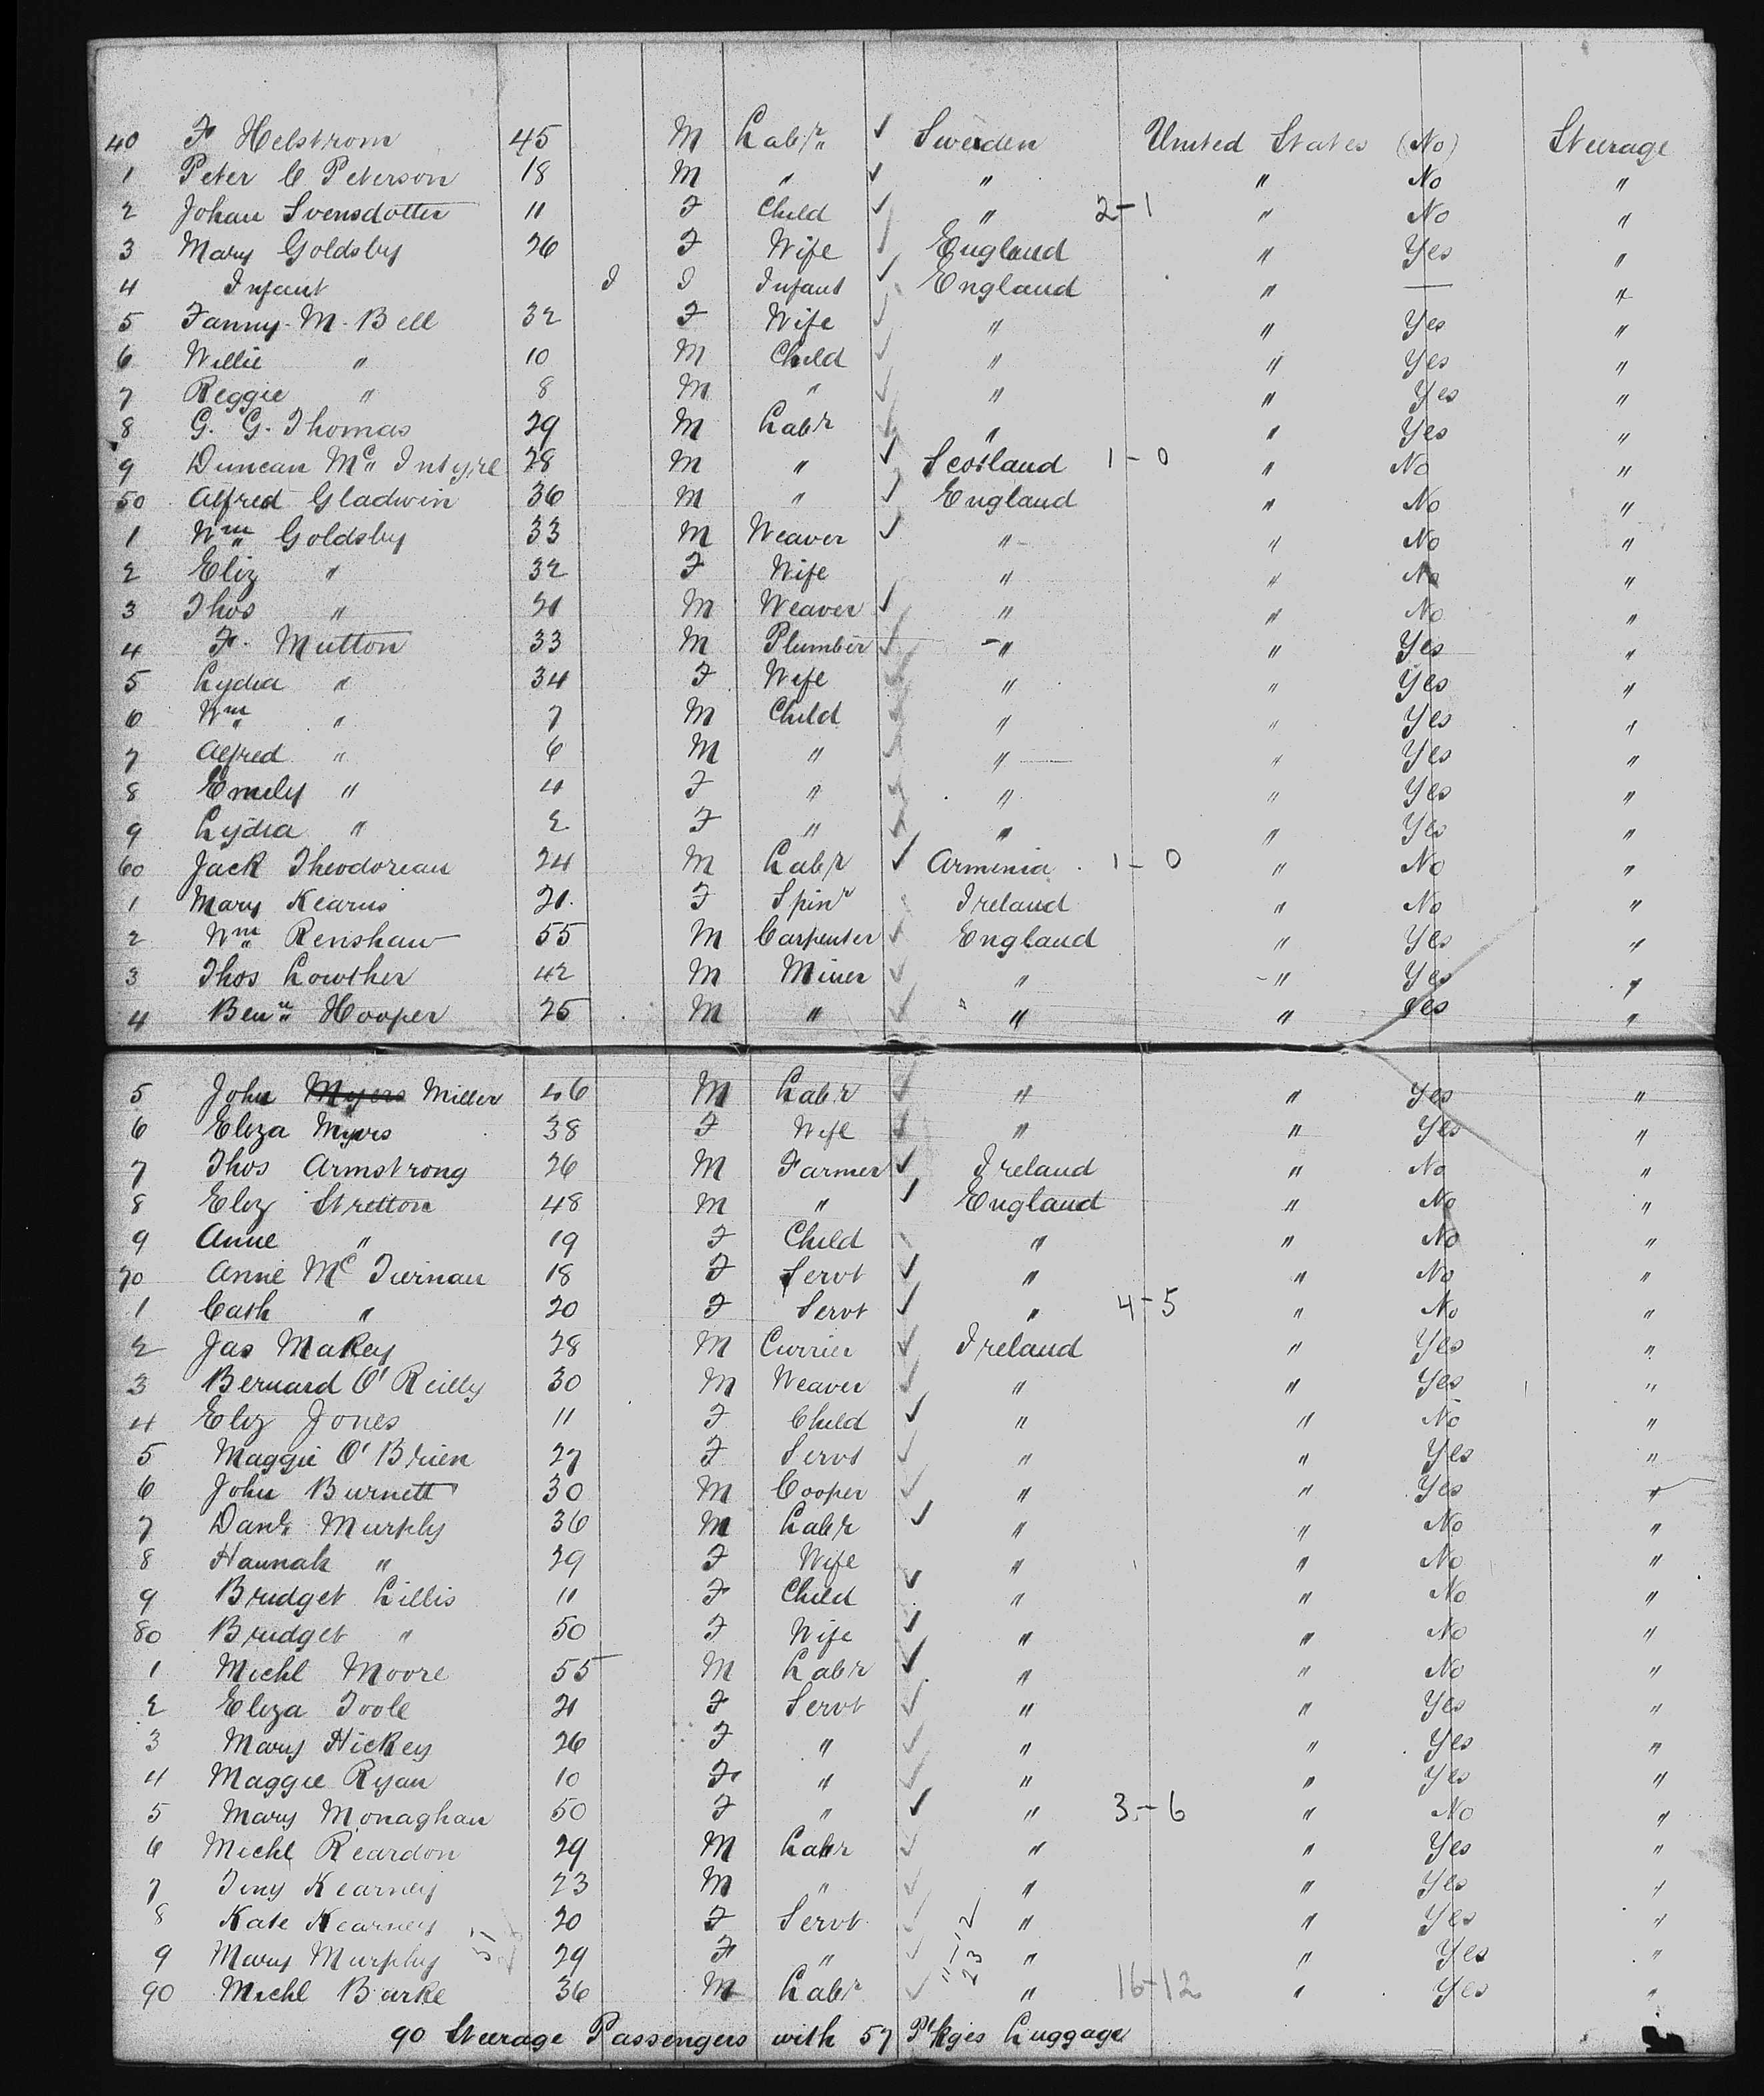 40 F Helstrom 45 M Labr Sweden United States (No) Steerage
1 Peter C Peterson 18 M " " " No "
2 Johan Svensdotter 11 F Child " 2-1 " No "
3 Mary Goldsby 26 F Wife England " Yes "
4 Infant I I Infant England " — "
5 Fanny M. Bell 32 F Wife " " Yes "
6 Willie " 10 M Child " " Yes "
7 Reggie " 8 M " " " Yes "
8 G. G. Thomas 29 M Labr " " Yes "
9 Duncan Mc Intyre 28 M " Scotland 1-0 " No "
50 Alfred Gladwin 36 M " England " No "
1 Wm Goldsby 33 M Weaver " " No "
2 Eliz " 32 F Wife " " No "
3 Thos " 21 M Weaver " " No "
4 F. Mutton 33 M Plumber " " Yes "
5 Lydia " 34 F Wife " " Yes "
6 Wm " 7 M Child " " Yes "
7 Alfred " 6 M " " " Yes "
8 Emily " 4 F " " " Yes "
9 Lydia " 2 F " " " Yes "
60 Jack Theodorian 24 M Labr Armenia 1-0 " No "
1 Mary Kearns 21 F Spinr Ireland " No "
2 Wm Renshaw 55 M Carpenter England " Yes "
3 Thos Lowther 42 M Miner " " Yes "
4 Benn Hooper 25 M " " " Yes "
5 John Myers Miller 46 M Labr " " Yes "
6 Eliza Myers 38 F Wife " " Yes "
7 Thos Armstrong 26 M Farmer Ireland " No "
8 Eliz Stretton 48 M " England " No "
9 Anne " 19 F Child " " No "
70 Anne Mc Tiernan 18 F Servt " " No "
1 Cath " 20 F Servt " 4-5 " No "
2 Jas Makey 28 M Currier Ireland " Yes "
3 Bernard O'Reilly 30 M Weaver " " Yes "
4 Eliz Jones 11 F Child " " No "
5 Maggie O'Brien 27 F Servt " " Yes "
6 John Burnett 30 M Cooper " " Yes "
7 Danl Murphy 36 M Labr " " No "
8 Hannah " 29 F Wife " " No "
9 Bridget Lillis 11 F Child " " No "
80 Bridget " 50 F Wife " " No "
1 Michl Moore 55 M Labr " " No "
2 Eliza Toole 21 F Servt " " Yes "
3 Mary Hickey 26 F " " " Yes "
4 Maggie Ryan 10 F " " " Yes "
5 Mary Monaghan 50 F " " 3-6 " No "
6 Michl Reardon 29 M Labr " " Yes "
7 Kearney 23 M " " " Yes "
8 Kate Kearney 20 F Servt " " Yes "
9 Mary Murphy 29 F " " " Yes "
90 Michl Burke 36 M Labr " 16-12 " Yes "
90 Steerage Passengers with 57 Pkges Luggage